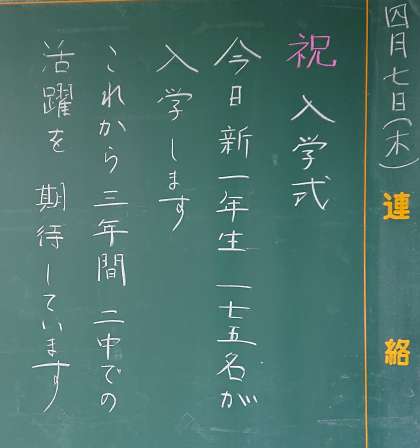 四月七日(木)
連絡
祝 入学式
今日新一年生一七五名が
入学します
これから三年間二中での
活躍を期待しています